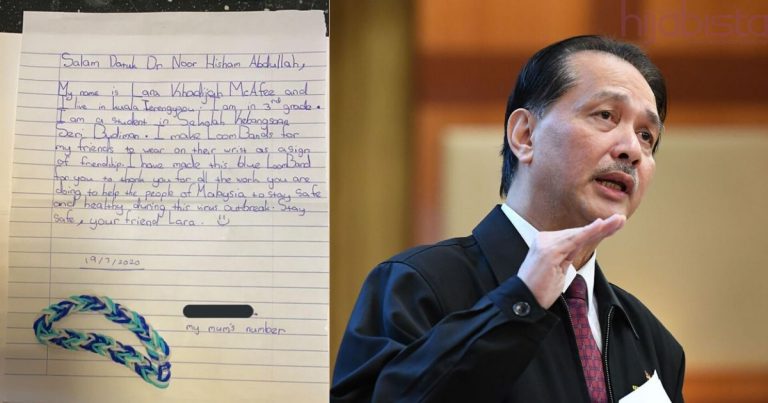 Salam Datuk Dr Noor Hisham Abdullah,
My name is Lara Khadijah McAfee and
I live in Kuala Terengganu. I am in 3rd grade.
I am a student in Sekolah Kebangsaan
Seri Budiman. I make LoomBands for
my friends to wear on their wrist as a sign
of friendship. I have made this blue LoomBand
for you to thank you for all the work you are
doing to help the people of Malaysia to stay safe
and healthy during this virus outbreak. Stay
safe, your friend Lara.
19/7/2020
my mum's number
hijabista